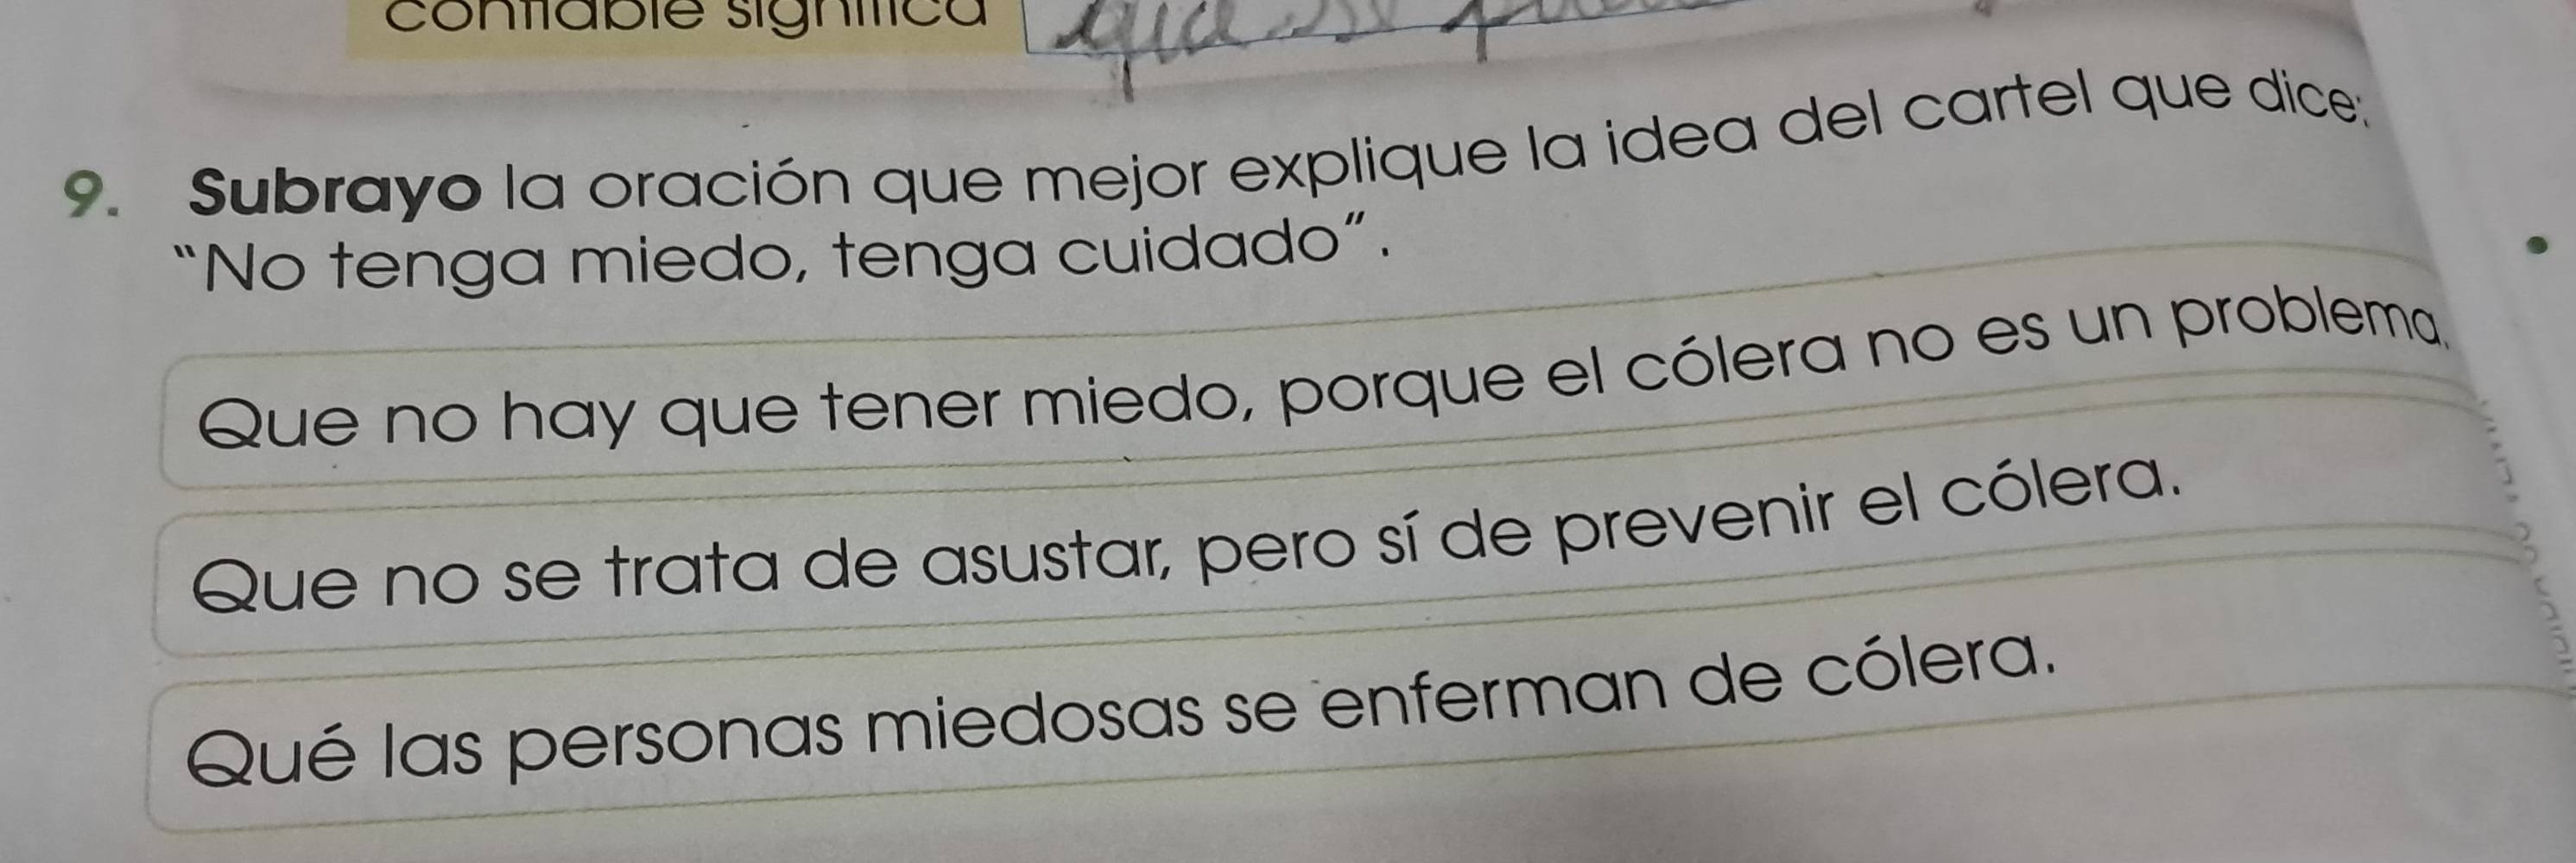 confiable significa que se
9. Subrayo la oración que mejor explique la idea del cartel que dice:
"No tenga miedo, tenga cuidado".
Que no hay que tener miedo, porque el cólera no es un problema.
Que no se trata de asustar, pero sí de prevenir el cólera.
Qué las personas miedosas se enferman de cólera.